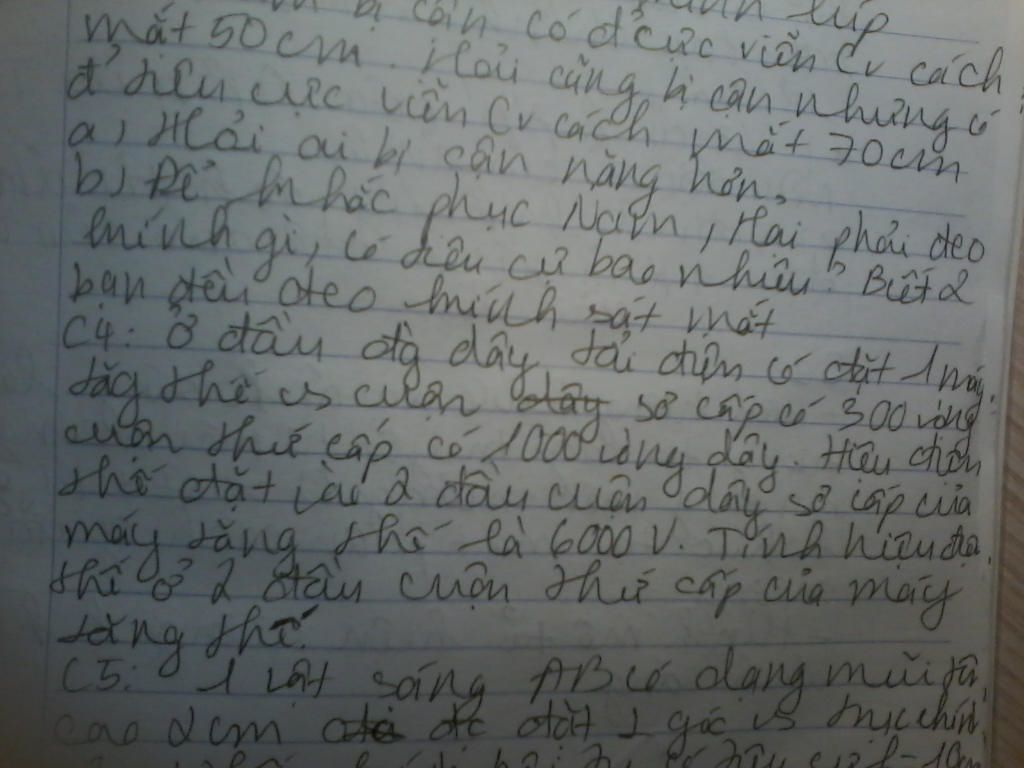 bị cận có đ' cực viễn Cv cách
mắt 50cm. Hải cũng bị cận nhưng có
đ' cực viễn Cv cách mắt 70cm
a, Hỏi ai bị cận nặng hơn,
b, Để khắc phục Nam, Hải phải đeo
kính gì, có tiêu cự bao nhiêu? Biết 2
bạn đều đeo kính sát mắt
C4: Ở đầu dây tải điện có đặt 1 máy
tăg thế vs cuộn dây sơ cấp có 300 vòng
cuộn thứ cấp có 1000 vòng dây. Hiệu điện
thế đặt vài 2 đầu cuộn dây sơ cấp của
máy tăng thế là 6000 V. Tính hiệu
thế ở 2 đầu cuộn thứ cấp của máy
tăng thế.
C5: 1 vật sáng AB có dạng mũi
cao 2cm đặt góc vs trục chín